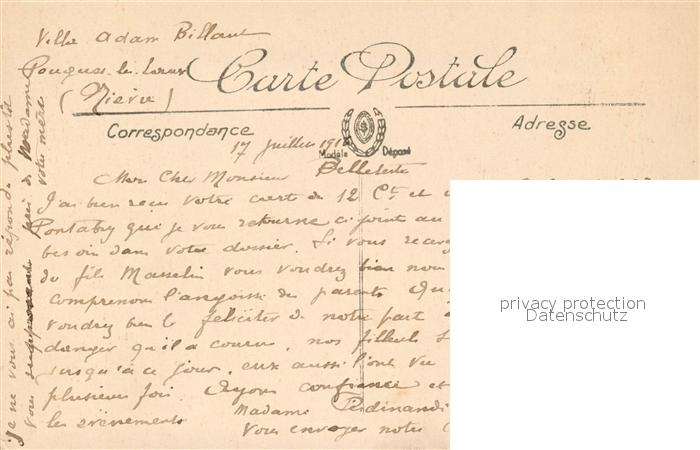 Villa Adam Billaut
Pougues-les-Eaux
(Nièvre)
Carte Postale
Correspondance
Adresse
Modèle Déposé
17 juillet 191
Mon Cher Monsieur Belleteste
J'ai bien reçu votre carte du 12 Ct et
que je vous retourne ci joint au
besoin dans votre dossier. Si vous
du fils Masselin vous voudrez bien nous
comprenons l'angoisse des parents
voudrez bien le féliciter de notre part
danger qu'il a couru, nos filleuls
jusqu'à ce jour, eux aussi l'ont vu
plusieurs fois. Ayons confiance et
les évènements Madame Ferdinand
vous envoyer notre
je ne vous ai pas répondu plus tôt
vous près de Madame
votre mère
privacy protection
Datenschutz